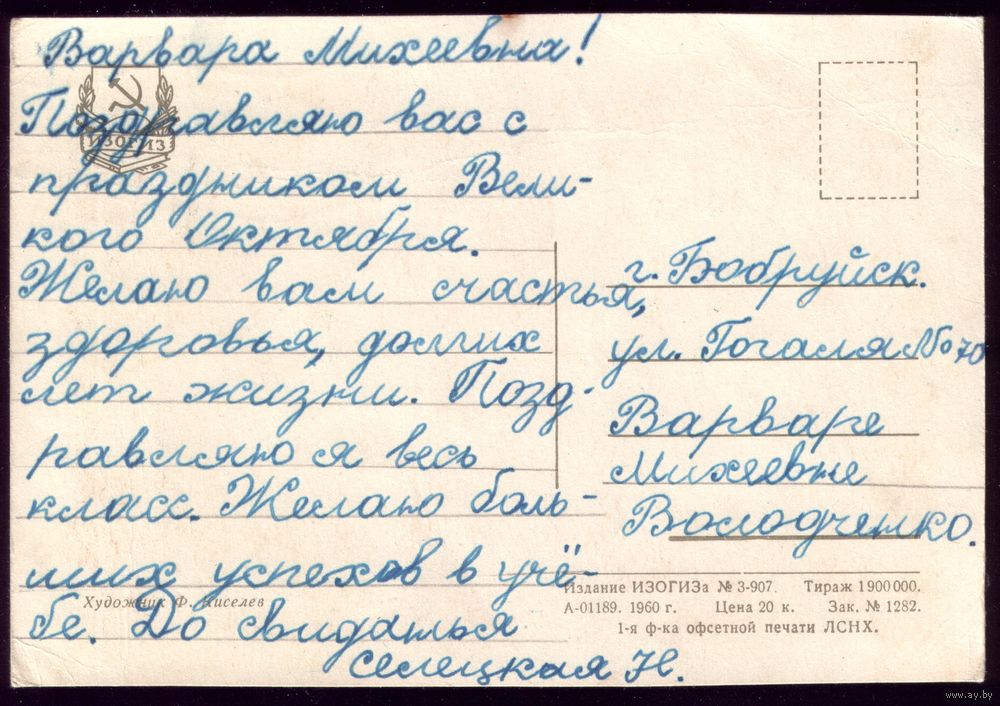 Варвара Михеевна!
ИЗОГИЗ
Поздравляю вас с
праздником Вели-
кого Октября.
Желаю вам счастья,
здоровья, долгих
лет жизни. Позд-
равляю я весь
класс. Желаю боль-
ших успехов в учё-
бе. До свиданья
Селецкая Н.
Художник Ф. Киселев
г. Бобруйск.
ул. Гогаля № 70
Варваре
Михеевне
Володченко.
Издание ИЗОГИЗа № 3-907. Тираж 1 900 000.
А-01189. 1960 г. Цена 20 к. Зак. № 1282.
1-я ф-ка офсетной печати ЛСНХ.
www.ay.by